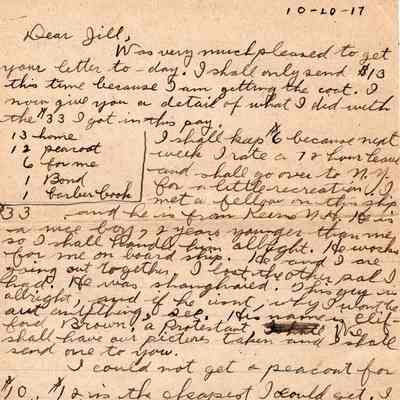 10-20-17
Dear Jill,
Was very much pleased to get
your letter to-day. I shall only send $13
this time because I am getting the coat. I
now give you a detail of what I did with
the $33 I got in this pay.
13 home
12 peacoat
6 for me
1 Bond
1 barber book
$33
I shall keep $6 because next
week I rate a 72 hour leave
and shall go over to N.Y.
for a little recreation. I
met a fellow on this ship
and he is from Keene N.H. He is
a nice boy, 2 years younger than me,
so I shall handle him allright. He works
for me on board ship. He and I are
going out together. I lost the other pal I
had. He was shanghaied. This guy is
allright, and if he isnt, why I won't be
out anything, see. His name is Clif-
ford Brown, a Protestant, We
shall have our pictures taken and I shall
send one to you.
I could not get a peacoat for
$10, $12 is the cheapest I could get. I